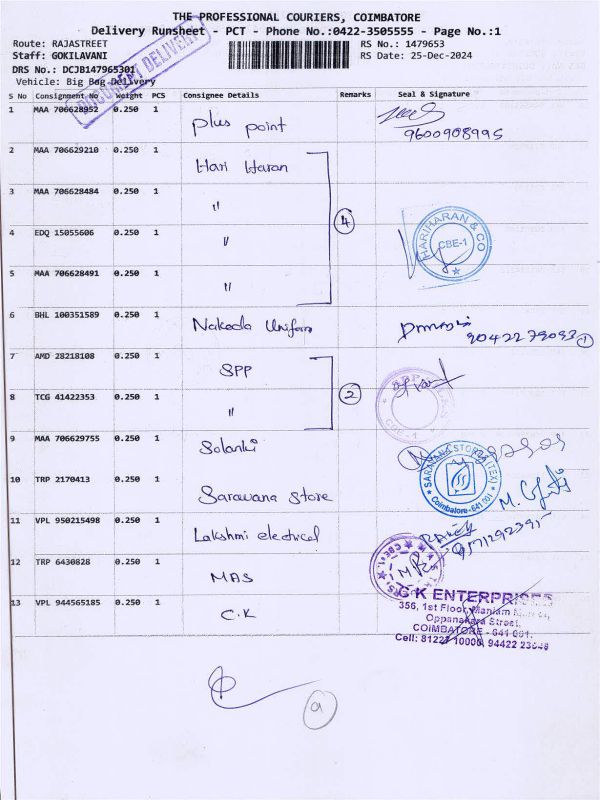 THE PROFESSIONAL COURIERS, COIMBATORE
Delivery Runsheet - PCT - Phone No.:0422-3505555 - Page No.:1
Route: RAJASTREET
Staff: GOKILAVANI
DRS No.: DCJB147965301
Vehicle: Big Bag Delivery
RS No.: 1479653
RS Date: 25-Dec-2024
DOCUMENT DELIVERY
S No Consignment No Weight PCS Consignee Details Remarks Seal & Signature
1 MAA 706628952 0.250 1 Plus point
9600908995
2 MAA 706629210 0.250 1 Hari Haran
3 MAA 706628484 0.250 1 "
4
4 EDQ 15055606 0.250 1 "
HARIHARAN & CO
CBE-1
5 MAA 706628491 0.250 1 "
6 BHL 100351589 0.250 1 Nakoda Uniform
9042279093 1
7 AMD 28218108 0.250 1 SPP
2
8 TCG 41422353 0.250 1 "
CBE-1
9 MAA 706629755 0.250 1 Solanki
10 TRP 2170413 0.250 1 Sarawana Store
SARAVANA STORES (TEX)
Coimbatore-641 001
11 VPL 950215498 0.250 1 Lakshmi electrical
12 TRP 6430828 0.250 1 MAS
13 VPL 944565185 0.250 1 C.K
K ENTERPRISES
356, 1st Floor,
Oppanakara Street,
COIMBATORE - 641 001.
Cell: 81222 10000, 94422 23648
a